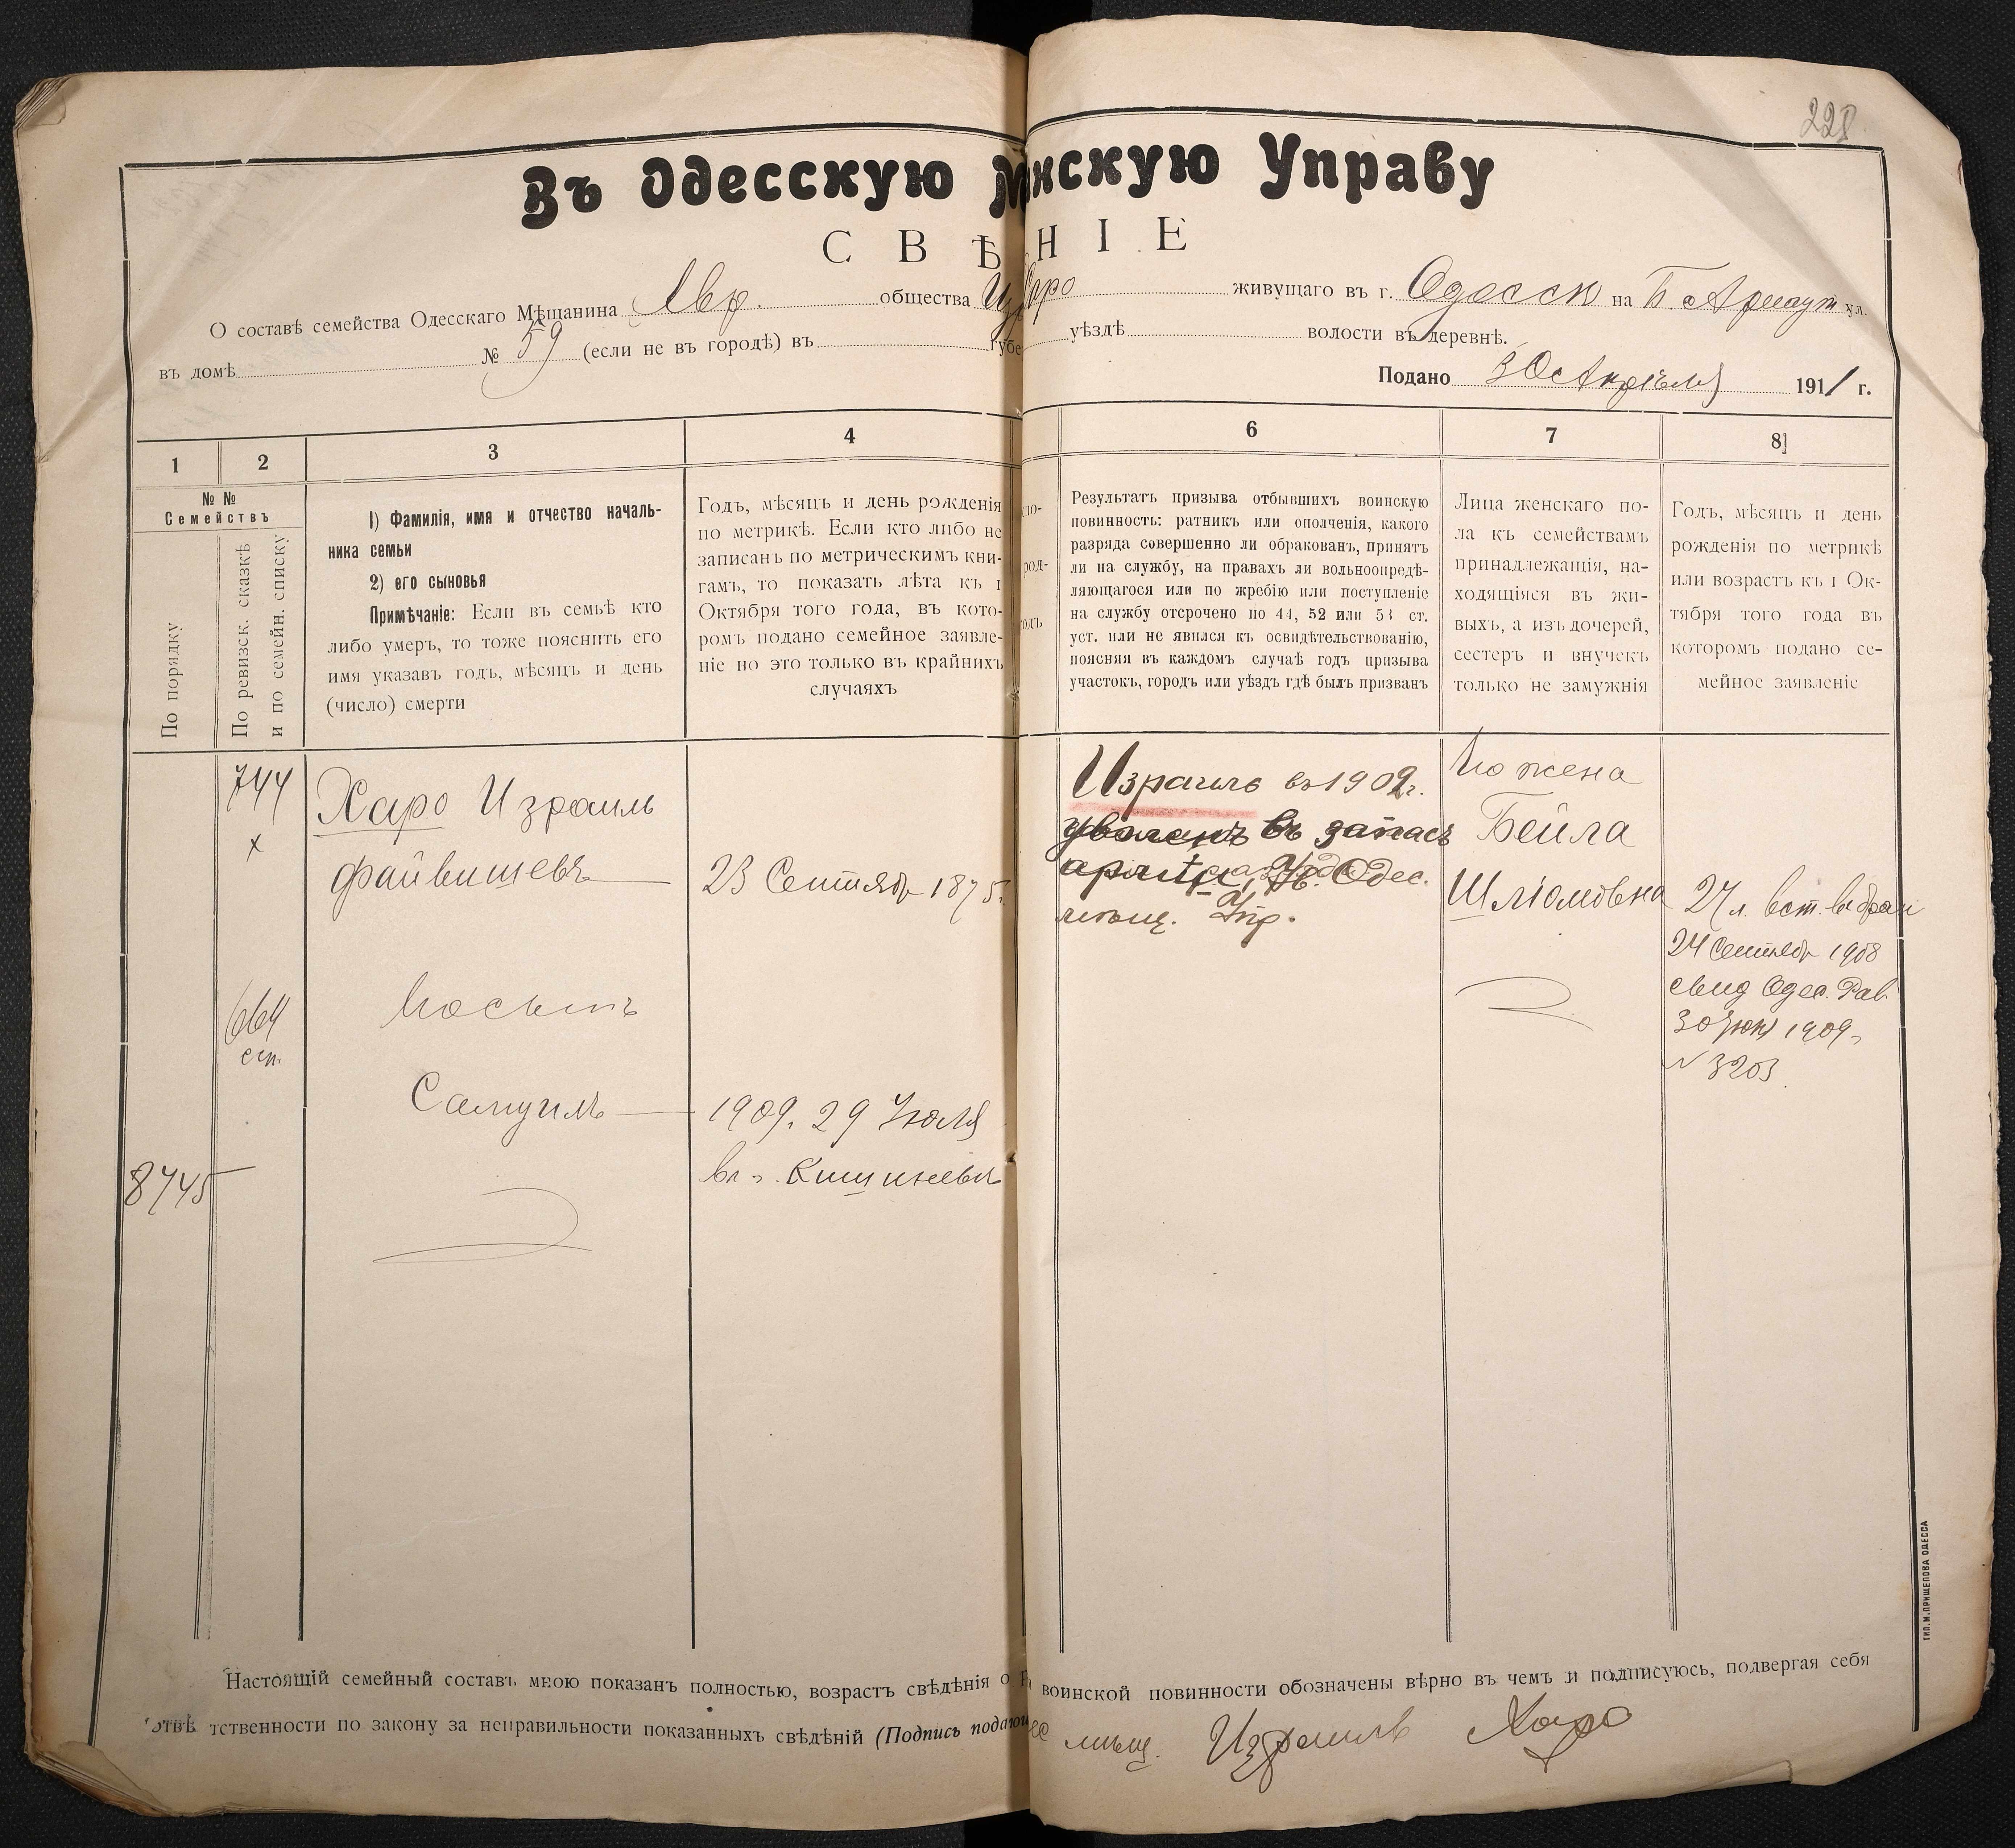 228
Въ Одесскую М нскую Управу
С В Ѣ Н І Е
О составѣ семейства Одесскаго Мѣщанина Авр. общества Из Харо живущаго въ г. Одессѣ на Б. Арнаут ул.
въ домѣ № 59 (если не въ городѣ) въ Губе уѣздѣ волости въ деревнѣ.
Подано 30 Апрѣля 1911 г.
1 2 3 4 6 7 8
№ №
Семействъ
По порядку
По ревизск. сказкѣ
и по семейн. списку
1) Фамилія, имя и отчество началь-
ника семьи
2) его сыновья
Примѣчаніе: Если въ семьѣ кто
либо умеръ, то тоже пояснить его
имя указавъ годъ, мѣсяцъ и день
(число) смерти
Годъ, мѣсяцъ и день рожденія
по метрикѣ. Если кто либо не
записанъ по метрическимъ кни-
гамъ, то показать лѣта къ 1
Октября того года, въ кото-
ромъ подано семейное заявле-
ніе но это только въ крайнихъ
случаяхъ
спо-
род-
одъ
Результатъ призыва отбывшихъ воинскую
повинность: ратникъ или ополченія, какого
разряда совершенно ли обракованъ, принятъ
ли на службу, на правахъ ли вольноопредѣ-
ляющагося или по жребію или поступленіе
на службу отсрочено по 44, 52 или 53 ст.
уст. или не явился къ освидѣтельствованію,
поясняя въ каждомъ случаѣ годъ призыва
участокъ, городъ или уѣздъ гдѣ былъ призванъ
Лица женскаго по-
ла къ семействамъ
принадлежащія, на-
ходящіяся въ жи-
выхъ, а изъ дочерей,
сестеръ и внучекъ
только не замужнія
Годъ, мѣсяцъ и день
рожденія по метрикѣ
или возрастъ къ 1 Ок-
тября того года въ
которомъ подано се-
мейное заявленіе
744
х
Харо Израиль
Файвишевъ
23 Сентяб 1875
Израиль въ 1902 г.
уволенъ въ запасъ
Одес.
мѣщ. Упр.
Его жена
Бейла
Шліомовна
27 л. вст. въ брак
24 Сентяб 1908
свид Одес. Рав
30 1909
№ 3203
664
сп.
Его сынъ
Самуилъ
1909. 29 Іюля
въ г. Кишиневѣ
8745
Настоящій семейный составъ мною показанъ полностью, возрастъ свѣдѣнія о воинской повинности обозначены вѣрно въ чемъ и подписуюсь, подвергая себя
отвѣ тственности по закону за неправильности показанныхъ свѣдѣній (Подпись подаю мѣщ. Израиль Харо
ТИП. М. ПРИЩЕПОВА ОДЕССА